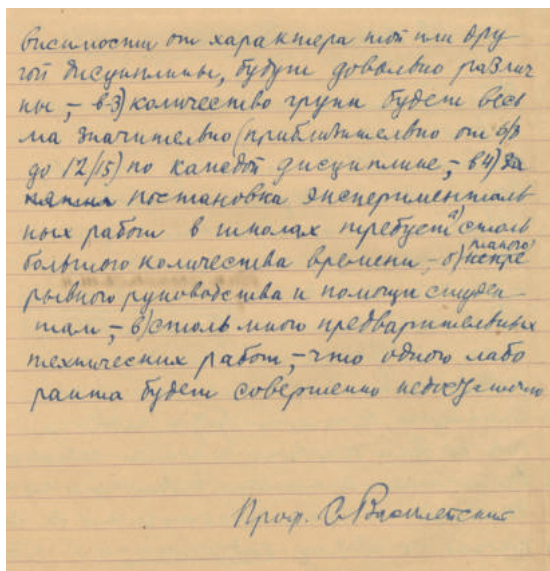 висимости от характера той или дру
гой дисциплины, будут довольно различ
ны, – в 3) количество групп будет весь
ма значительно (приблизительно от 6/8
до 12/15) по каждой дисциплине, – в 4) за
постановка эксперименталь
ных работ в школах требует а) столь
большого количества времени, – б) такого непре
рывного руководства и помощи студен
там, – в) столь много предварительных
технических работ, – что одного лабо
ранта будет совершенно недостаточно
Проф. С. Василейский